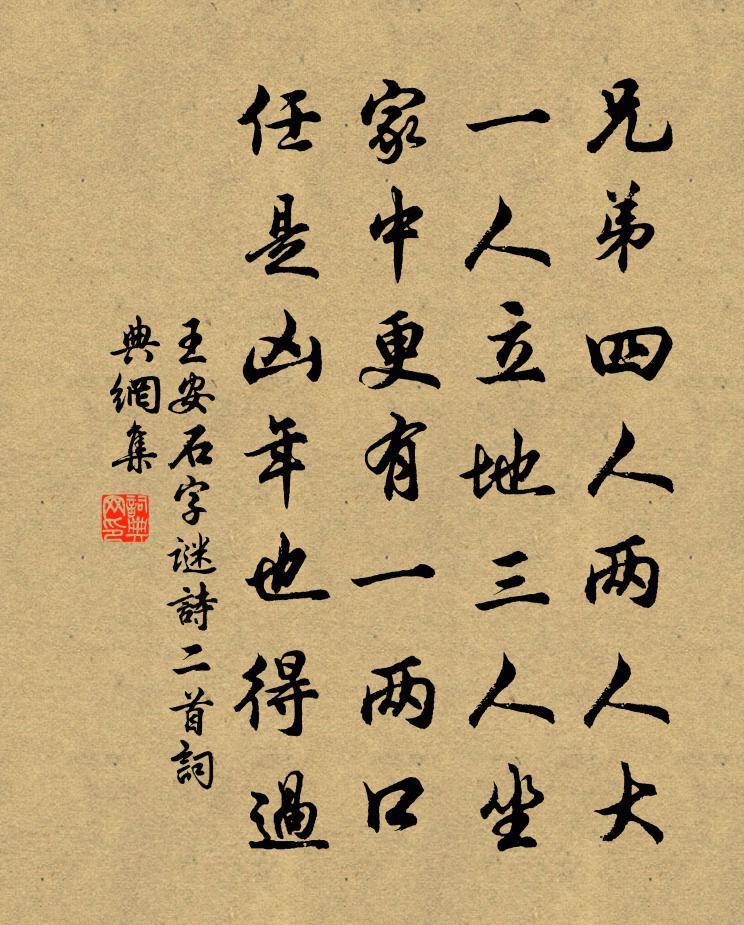 兄弟四人两人大
一人立地三人坐
家中更有一两口
任是凶年也得過
王安石字謎詩二首詞
典網集
詞典网印